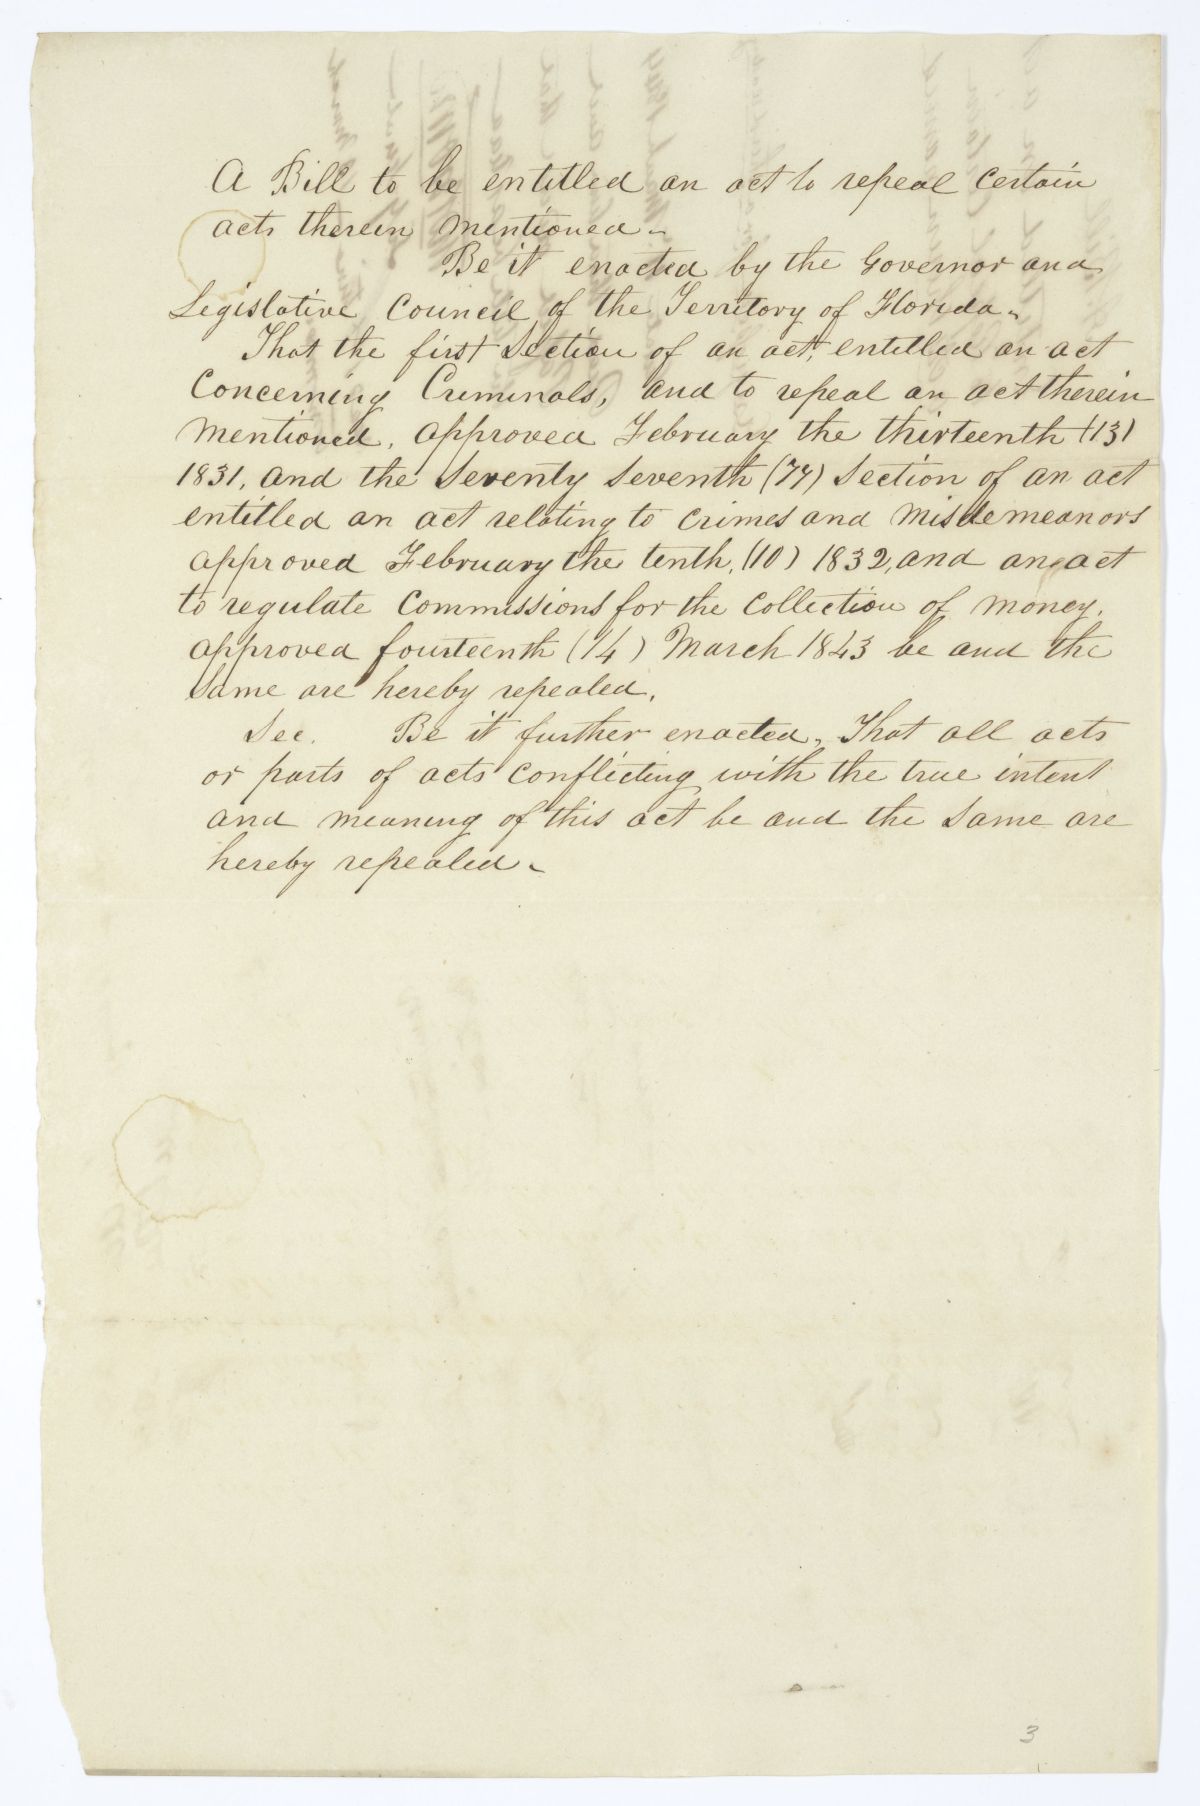 A Bill to be entitled an act to repeal certain
acts therein mentioned.
Be it enacted by the Governor and
Legislative Council of the Territory of Florida.
That the first Section of an act, entitled an act
Concerning Criminals, and to repeal an act therein
mentioned, approved February the thirteenth (13)
1831, and the Seventy Seventh (77) Section of an act
entitled an act relating to Crimes and Misdemeanors
approved February the tenth, (10) 1832, and an act
to regulate Commissions for the Collection of money,
approved fourteenth (14) March 1843 be and the
Same are hereby repealed.
Sec. Be it further enacted, That all acts
or parts of acts conflicting with the true intent
and meaning of this act be and the Same are
hereby repealed.
3